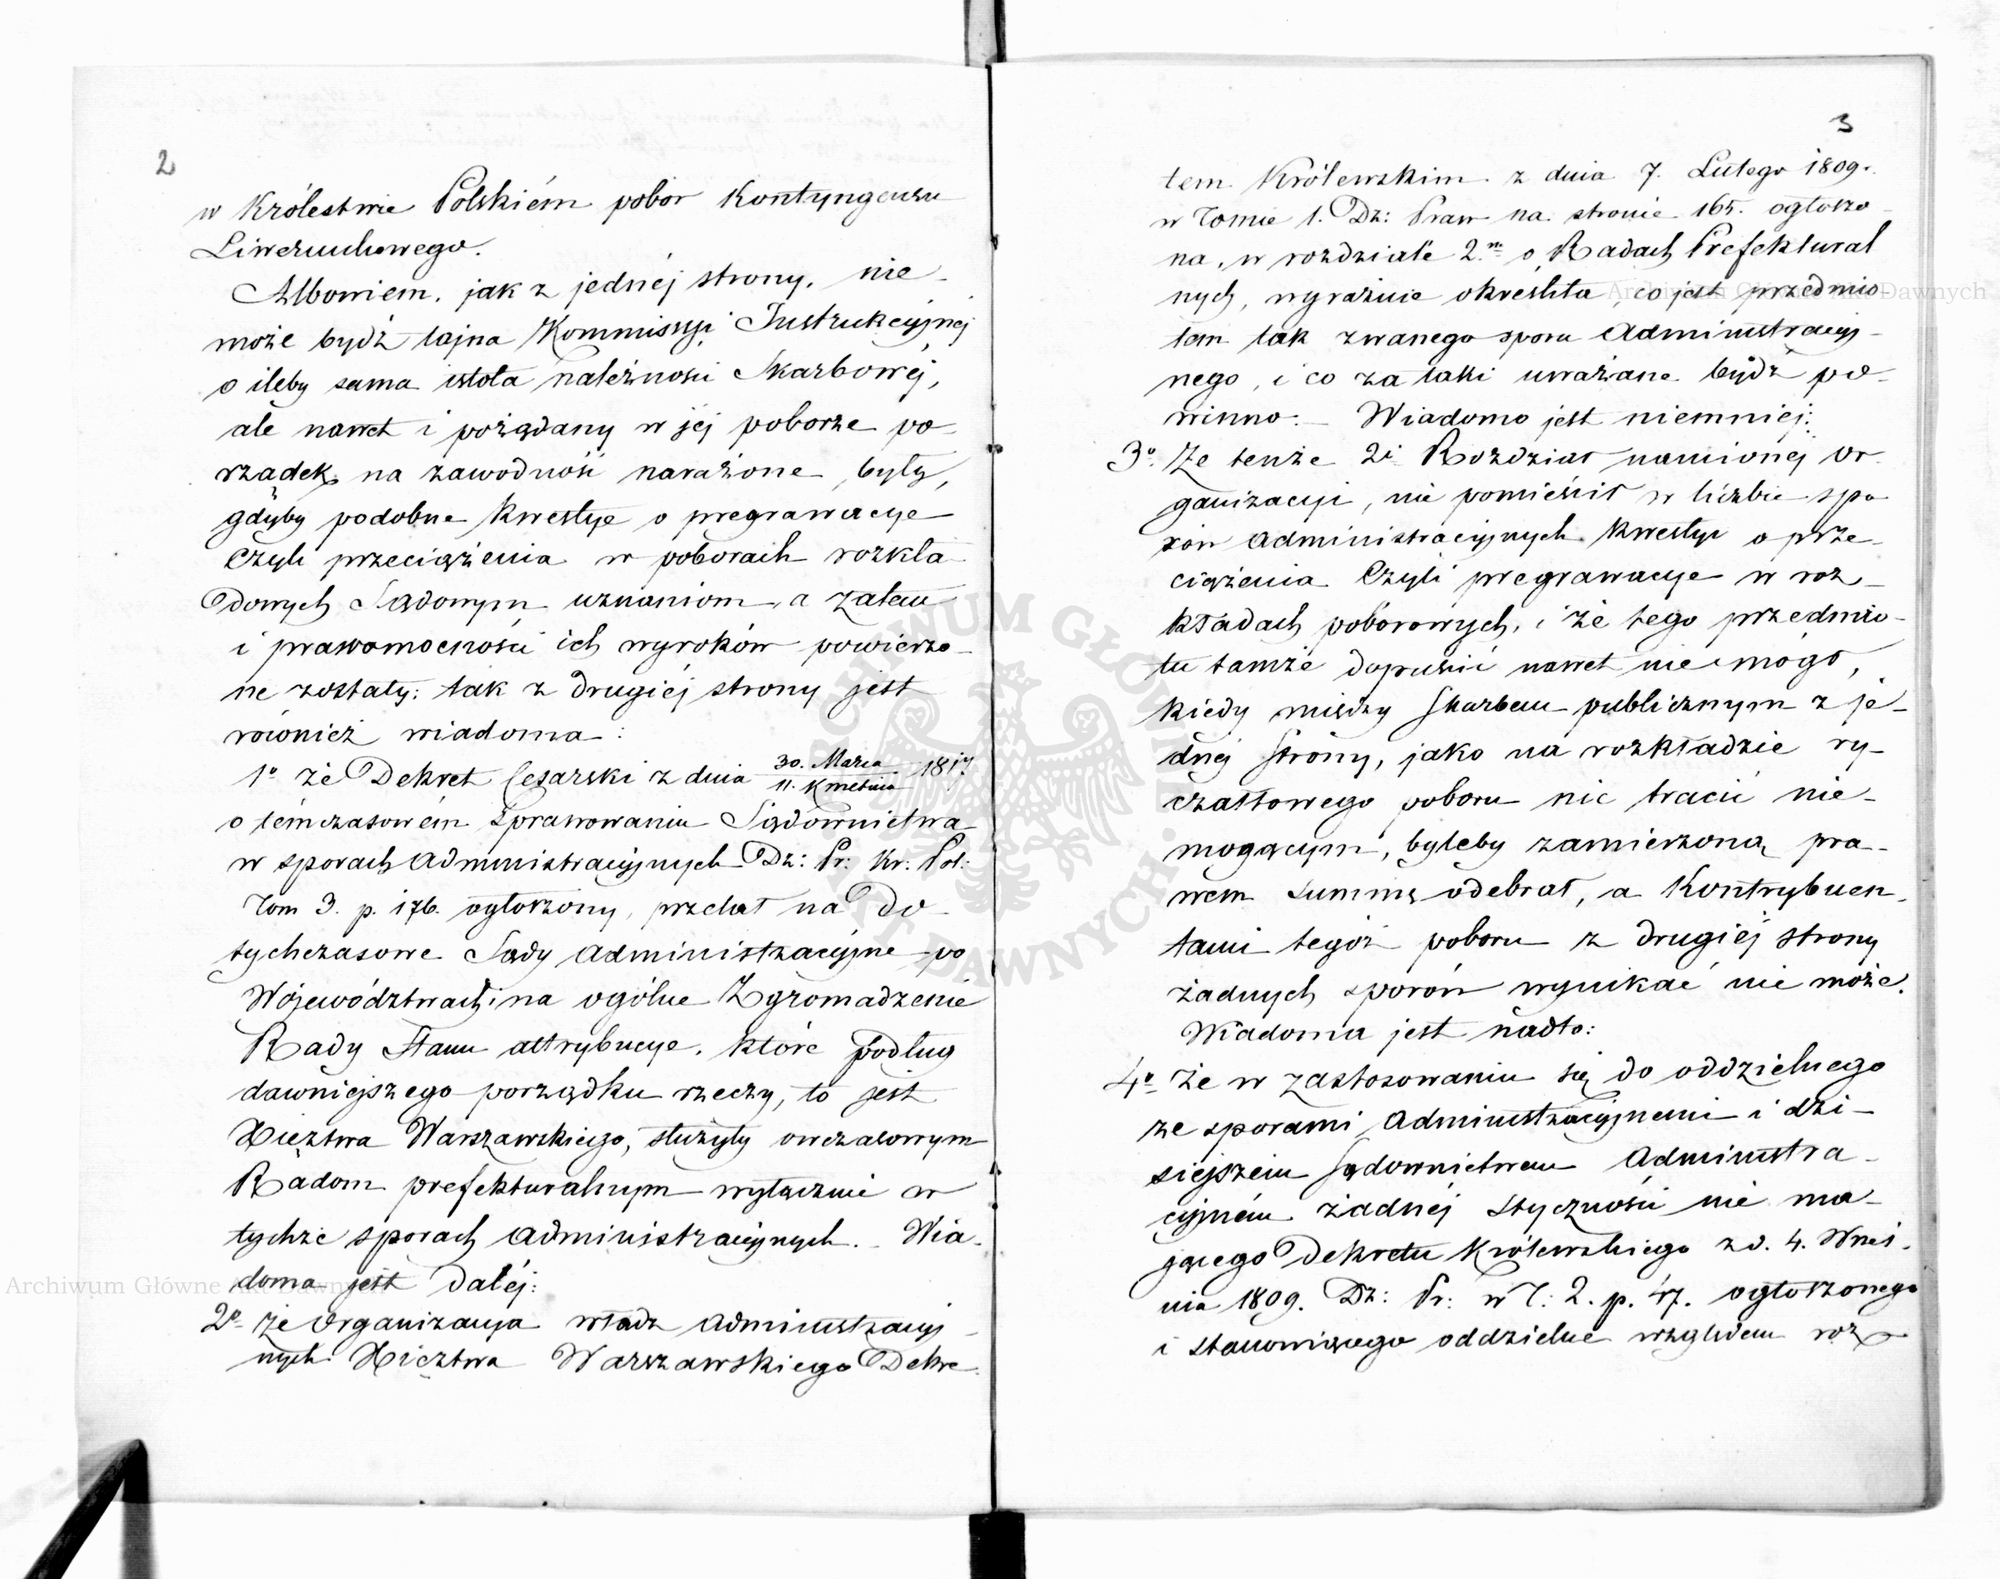 2
w Królestwie Polskiém pobór Kontyngensu
Liwerunkowego.
Albowiem, jak z jednéj strony, nie-
może bydź tajna Kommissyi Instrukcyjnej
o ileby sama istota należności Skarbowéj,
ale nawet i pożądany w jéj poborze po-
rządek na zawodność narażone były,
gdyby podobne kwestye o pregrawacye
czyli przeciążenia w poborach rozkła
dowych Sądowym uznaniom, a zatem
i prawomocności ich wyroków powierzo-
ne zostały; tak z drugiéj strony jest
również wiadoma:
1o że Dekret Cesarski z dnia 30. Marca / 11. Kwietnia 1817
o témczasowém sprawowaniu Sądownictwa
w sporach administracyjnych Dz: Pr: Kr: Pol:
Tom 3. p. 176. ogłoszony, przelał na do-
tychczasowe Sądy administracyjne po
Województwach i na ogólne Zgromadzenie
Rady Stanu attrybucye, które podług
dawniejszego porządku rzeczy, to jest
Xięztwa Warszawskiego, służyły owczasowym
Radom prefekturalnym wyłącznie w
tychże sporach administracyjnych. Wia-
doma jest daléj:
2o że organizacya władz administracyj
nych Xięztwa Warszawskiego Dekre-
3
tem Królewskim z dnia 7. Lutego 1809.
w Tomie 1. Dz: Praw na stronie 165. ogłoszo
na, w rozdziale 2.m o Radach Prefektural
nych, wyraźnie określiła, co jest przedmio-
tem tak zwanego sporu administracyj-
nego, i co za taki uważane bydź po-
winno. – Wiadomo jest niemniej:
3o Że tenże 2i Rozdział namionéj or
ganizacyi, nie pomieścił w liczbie spo
rów administracyjnych kwestyi o prze-
ciążenia czyli pregrawacye w roz-
kładach poborowych, i że tego przedmio-
tu tamże dopuścić nawet nie mógł,
kiedy między Skarbem publicznym z je-
dnéj strony, jako na rozkładzie ry-
czałtowego poboru nic tracić nie-
mogącym, byleby zamierzoną pra-
wem summę odebrał, a kontrybuen-
tami tegóż poboru z drugiéj strony
żadnych sporów wynikać nie może.
Wiadoma jest nadto:
4o że w zastosowaniu się do oddzielnego
ze sporami administracyjnemi i dzi-
siejszem Sądownictwem administra-
cyjném żadnéj styczności nie ma-
jącego Dekretu Królewskiego z d. 4. Wrześ-
nia 1809. Dz: Pr: w T: 2. p. 47. ogłoszonego
i stanowiącego oddzielne względem roz
Archiwum Główne Akt Dawnych
Archiwum Główne Akt Dawnych
ARCHIWUM GŁÓWNE AKT DAWNYCH